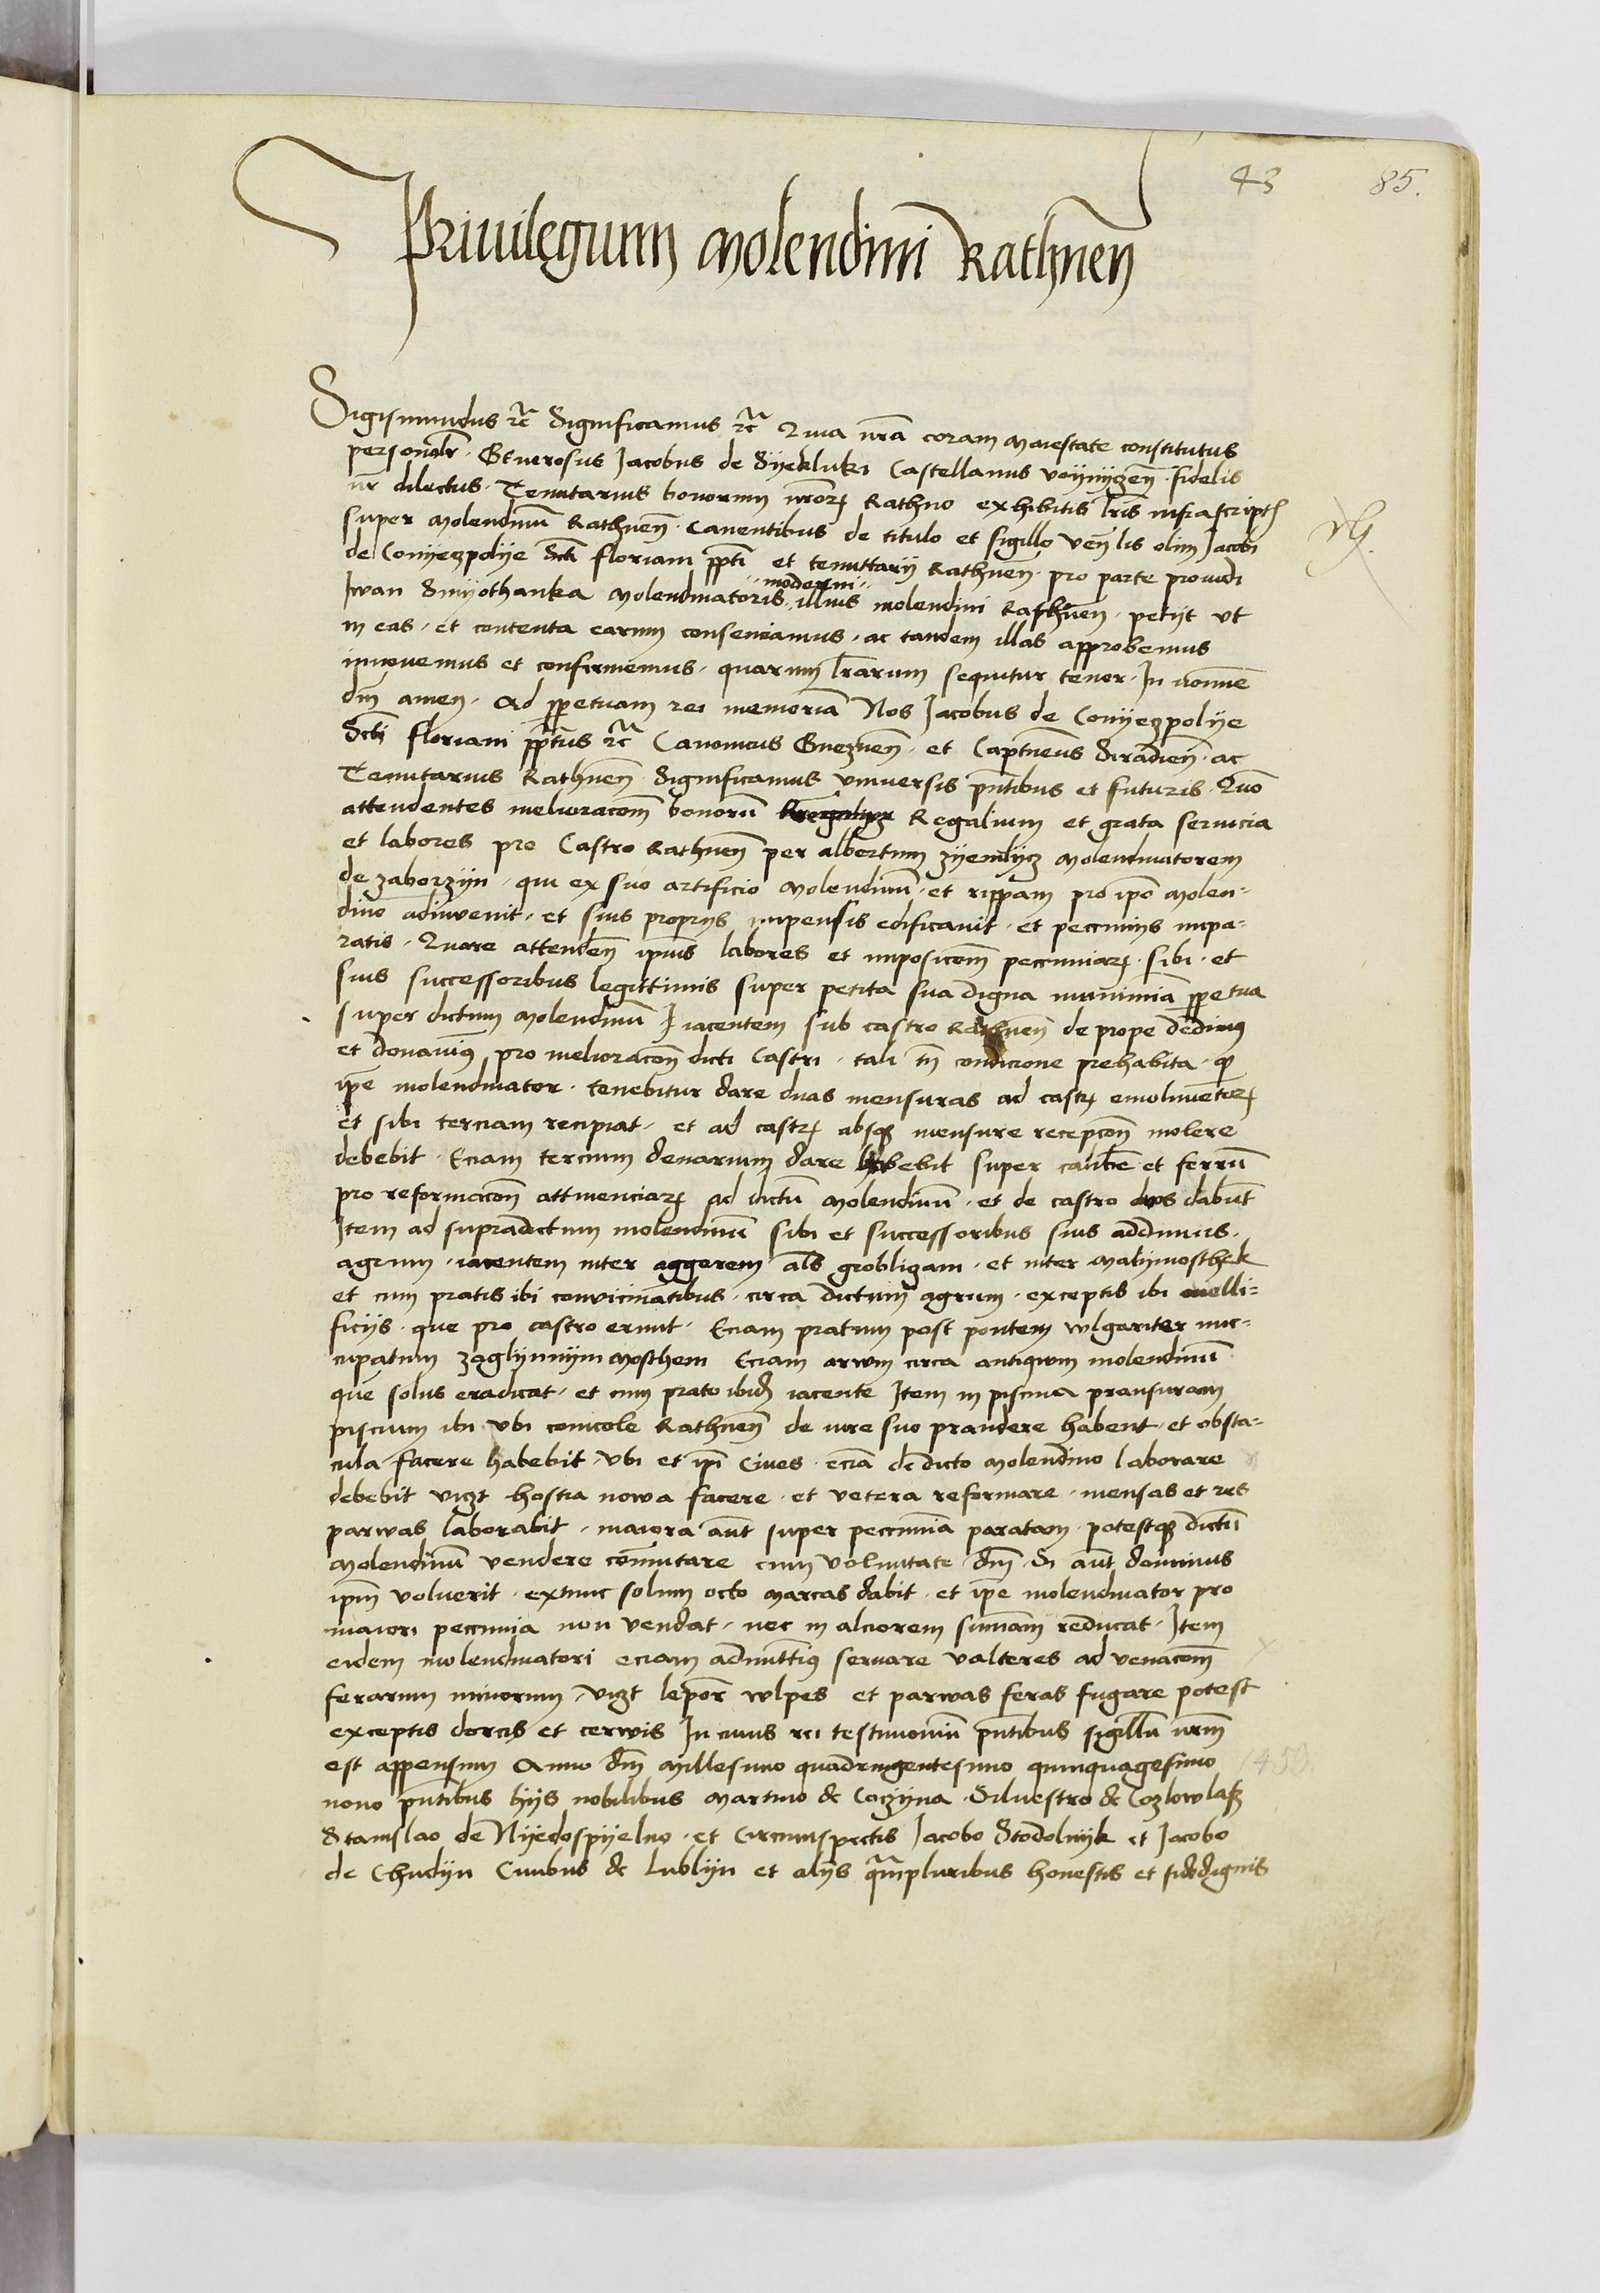 43 85.
Priuilegium Molendini Rathnen̄
Sigismundus ꝛc̃ Significamus ꝛc̃ Quia nr̄a coram Maiestate constitutus
personalr̄. Generosus Jacobus de Syekluki Castellanus voynyczen̄. fidelis
nr̄ dilectus. Tenutarius bonorum nr̄orꝫ Rathno exhibitis lr̄is infrascriptꝭ
super Molendinū Rathnen̄. Cauentibus de titulo et sigillo Ven̄lis olim Jacobi
de Conyeczpolye Scti floriani pp̄ti et tenuttarij Rathnen̄. pro parte prouidi
moderni
Iwan Smyothanka Molendinatoris illius molendini Rathnen̄. petijt vt
in eas. et contenta earum consenciamus. ac tandem illas approbemus
innouemus et confirmemus. quarum lr̄arum sequitur tenor. In nomine
dn̄i amen. Ad pp̄etuam rei memoriā Nos Jacobus de Conyeczpolye
Scti floriani pp̄tus ꝛc̃ Canonicus Gneznen̄. et Captn̄eus Siradien̄. ac
Tenutarius Rathnen̄ Significamus vniuersis pn̄tibus et futuris. Quō
attendentes melioracōm bonorū Regalium et grata seruicia
et labores pro Castro Rathnen̄ per albertum zyemlycz Molendinatorem
de zaborzyn. qui ex suo artificio Molendinū. et rippam pro ipō molen-
dino adinuenit. et suis proprijs impensis edificauit. et peccunijs impa-
ratis. Quare attenden̄ ipius labores et imposicōm peccuniarꝫ. sibi. et
suis successoribus legittimis super petita sua digna munimīa pp̄etua
super dictum Molendinū iacentem sub castro Rathnen̄ de prope dedimus
et donauim̄s pro melioracōn̄ dicti Castri. tali tn̄ condicione prehabita. qp
ip̄e molendinator. tenebitur dare duas mensuras ad castrꝫ emolimentorꝫ
et sibi terciam recipiat. et ad castrꝫ absqꝫ mensure recepcōn̄ molere
debebit. Eciam tercium denarium dare debebit super et ferrū
pro reformacōn̄ attinenciarꝫ ad dictū Molendinū. et de castro duos dabūt
Item ad supradictum molendinū sibi et successoribus suis addimus.
agrum. iacentem inter aggerem als̄ grobliczam. et inter Malymosthek
et cum pratis ibi conuicinātibus. circa dictum agrum. exceptis ibi melli-
ficijs. que pro castro erunt. Eciam pratum post pontem wlgariter nuc-
cupatum zaglynnym Mosthem Eciam arwum circa antiqwm molendinū
que solus eradicat. et cum prato ibidꝫ iacente Item in piscina pransuram
piscium ibi vbi conicole Rathnen̄ de iure suo prandere habent. et obsta-
cula facere habebit. vbi et ipi Ciues. eciā de dicto Molendino laborare
debebit vizt hostia nowa facere. et vetera reformare. mensas et res
parwas laborabit. maiora aut̄ super peccuniā paratam. potestqꝫ dictū
Molendinū vendere com̄utare cum voluntate dn̄i. Si aut̄ dominus
ipm̄ voluerit. extunc solum octo Marcas dabit. et ip̄e molendinator pro
maiori peccunia non vendat. nec in alciorem sum̄am reducat. Item
eidem molendinatori eciam admittim̄s seruare valteres ad venacōm
ferarum minorum. vizt lepor̄ wlpes et parwas feras fugare potest
exceptis dorcis et cerwis In cuius rei testimoniū pn̄tibus sigillū nr̄m
est appensum Anno dn̄i Millesimo quadringentesimo quinquagesimo 1459.
nono pn̄tibus hijs nobilibus Martino de Coczyna. Siluestro de Cozlowlasz
Stanislao de Nyedospyelno. et Circumspectis Jacobo Stodolnyk et Jacobo
de Chudyn Ciuibus de Lublyn et alijs qm̄pluribus honestis et fidedignis